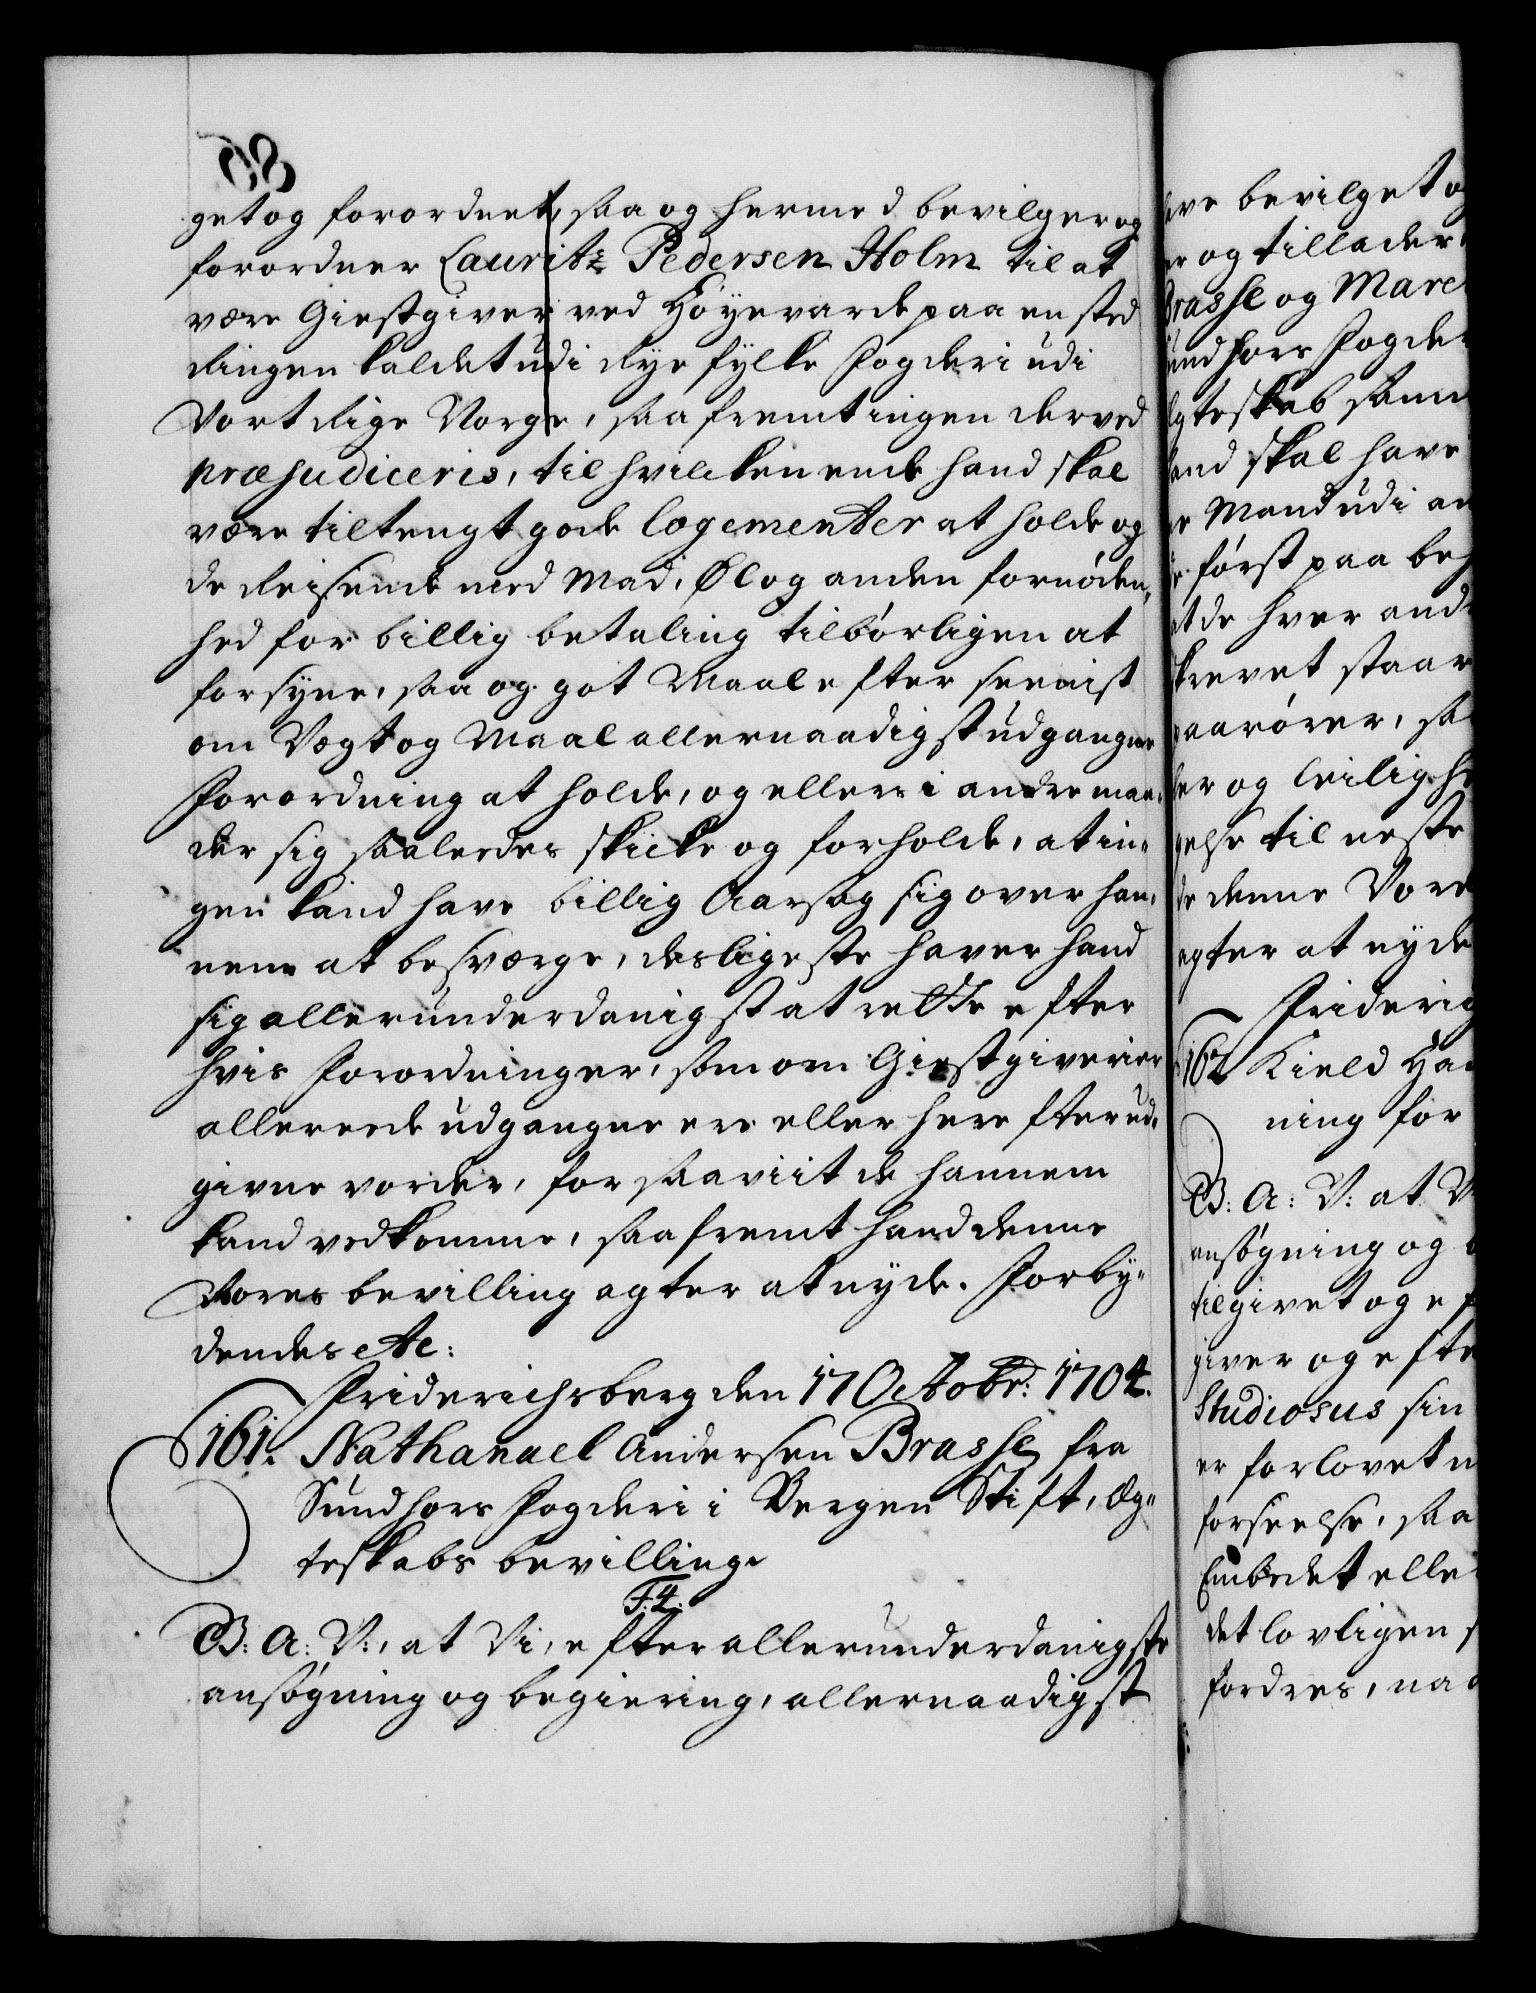 get og forordnet, saa og hermed bevilger og
forordner Lauritz Pedersen Holm til at
være Giestgiver ved Høyevarde paa en sted
Ringen kaldet udi Rye fylke fogderi udi
Vort Rige Norge, saafremt ingen derved
præjudiceris, til hvilcken ende hand skal
være tiltengt gode logementer at holde og
de Reisende med Mad, Øl og anden fornøden„
hed for billig betaling tilbørligen at
forsyne, saa og got Maal efter seenist
om Vegt og Maal allernaadigst udgangne
Forordning at holde, og ellers i andre maa„
der sig saaledes skicke og forholde, at in„
gen kand have billig Aarsag sig over han„
nem at besverge, desligeste haver hand
sig allerunderdanigst at rette efter
hvis Forordninger, som om Giestgiverier
allereede udgangne ere eller herefter ud„
givne vorder, for saaviit de hannem
kand vedkomme, saafremt hand denne
Vores bevilling agter at nyde. Forby„
dendes etc:
Friderichsberg den 17 Octobr: 1704.
161. Nathanael Andersen Brasse fra
Sundhors Fogderi i Bergen Stift, Æg„
teskabs bevilling.
F. 4.
G: A: V:, at Vi, efter allerunderdanigste
ansøgning og begiering, allernaadigst
bevilget og
og tillader
Brasse og Mare
Fogde
skal have
Mand udi an
først paa be
at de hver and
staar
og leilighe
til neste
denne Vore
agter at nyde
Friderig
162 Kield Ha
ning for
G: A: V: at V
ansøgning og
tilgivet og ef
giver og efte
Studiosus sin
er forlovet
forseelse, saa
Embedet elle
det lovligen
fordres, na